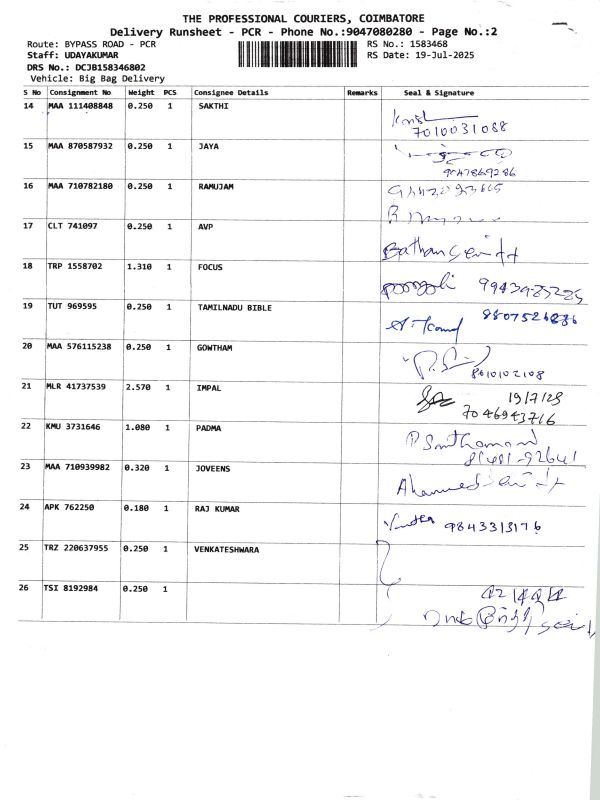 THE PROFESSIONAL COURIERS, COIMBATORE
Delivery Runsheet - PCR - Phone No.:9047080280 - Page No.:2
Route: BYPASS ROAD - PCR RS No.: 1583468
Staff: UDAYAKUMAR RS Date: 19-Jul-2025
DRS No.: DCJB158346802
Vehicle: Big Bag Delivery
S No Consignment No Weight PCS Consignee Details Remarks Seal & Signature
14 MAA 111408848 0.250 1 SAKTHI
7010031088
15 MAA 870587932 0.250 1 JAYA
9047869286
16 MAA 710782180 0.250 1 RAMUJAM
17 CLT 741097 0.250 1 AVP
18 TRP 1558702 1.310 1 FOCUS
19 TUT 969595 0.250 1 TAMILNADU BIBLE
20 MAA 576115238 0.250 1 GOWTHAM
8610102108
21 MLR 41737539 2.570 1 IMPAL
19/7/25
7046943716
22 KMU 3731646 1.080 1 PADMA
23 MAA 710939982 0.320 1 JOVEENS
24 APK 762250 0.180 1 RAJ KUMAR
9843313176
25 TRZ 220637955 0.250 1 VENKATESHWARA
26 TSI 8192984 0.250 1